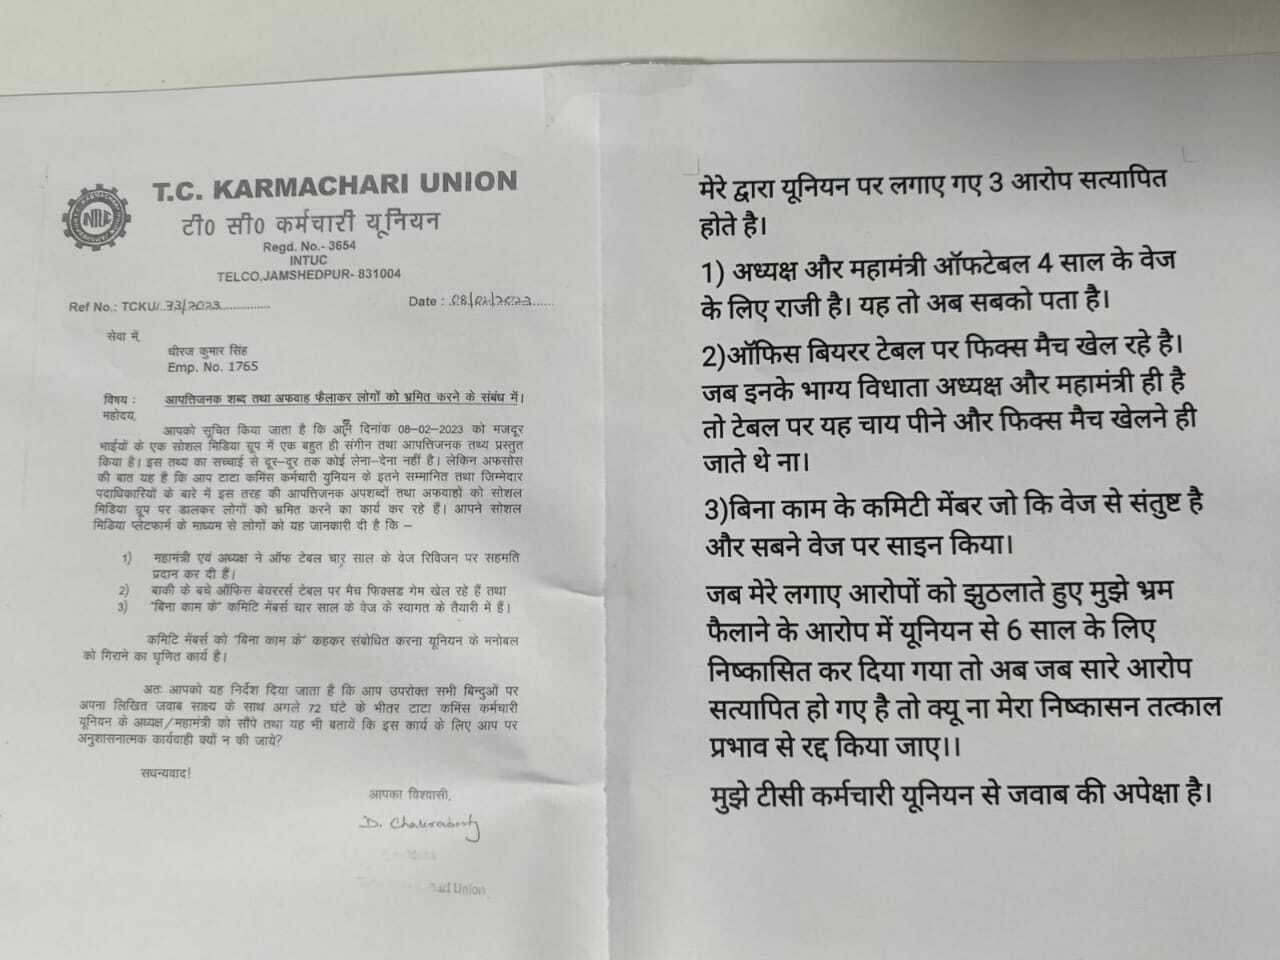 T.C. KARMACHARI UNION
टी0 सी0 कर्मचारी यूनियन
Regd. No.- 3654
INTUC
TELCO,JAMSHEDPUR- 831004
Ref No.: TCKU/.33/2023................
Date : .08/02/2023......
सेवा में,
धीरज कुमार सिंह
Emp. No. 1765
विषय : आपत्तिजनक शब्द तथा अफवाह फैलाकर लोगों को भ्रमित करने के संबंध में।
महोदय,
आपको सूचित किया जाता है कि दिनांक 08-02-2023 को मजदूर
भाईयों के एक सोशल मिडिया ग्रूप में एक बहुत ही संगीन तथा आपत्तिजनक तथ्य प्रस्तुत
किया है। इस तथ्य का सच्चाई से दूर-दूर तक कोई लेना-देना नहीं है। लेकिन अफसोस
की बात यह है कि आप टाटा कमिंस कर्मचारी युनियन के इतने सम्मानित तथा जिम्मेदार
पदाधिकारियों के बारे में इस तरह की आपत्तिजनक अपशब्दों तथा अफवाहों को सोशल
मिडिया ग्रूप पर डालकर लोगों को भ्रमित करने का कार्य कर रहे हैं। आपने सोशल
मिडिया प्लेटफार्म के माध्यम से लोगों को यह जानकारी दी है कि –
1) महामंत्री एवं अध्यक्ष ने ऑफ टेबल चार साल के वेज रिविजन पर सहमति
प्रदान कर दी हैं।
2) बाकी के बचे ऑफिस बेयररर्स टेबल पर मैच फिक्सड गेम खेल रहे हैं तथा
3) "बिना काम के" कमिटि मेंबर्स चार साल के वेज के स्वागत के तैयारी में हैं।
कमिटि मेंबर्स को "बिना काम के" कहकर संबोधित करना यूनियन के मनोबल
को गिराने का घृणित कार्य है।
अतः आपको यह निर्देश दिया जाता है कि आप उपरोक्त सभी बिन्दुओं पर
अपना लिखित जवाब साक्ष्य के साथ अगले 72 घंटे के भीतर टाटा कमिंस कर्मचारी
यूनियन के अध्यक्ष/महामंत्री को सौंपे तथा यह भी बतायें कि इस कार्य के लिए आप पर
अनुशासनात्मक कार्यवाही क्यों न की जाये?
सधन्यवाद!
आपका विश्वासी,
D. Chakraborty
Union
मेरे द्वारा यूनियन पर लगाए गए 3 आरोप सत्यापित
होते है।
1) अध्यक्ष और महामंत्री ऑफटेबल 4 साल के वेज
के लिए राजी है। यह तो अब सबको पता है।
2)ऑफिस बियरर टेबल पर फिक्स मैच खेल रहे है।
जब इनके भाग्य विधाता अध्यक्ष और महामंत्री ही है
तो टेबल पर यह चाय पीने और फिक्स मैच खेलने ही
जाते थे ना।
3)बिना काम के कमिटी मेंबर जो कि वेज से संतुष्ट है
और सबने वेज पर साइन किया।
जब मेरे लगाए आरोपों को झुठलाते हुए मुझे भ्रम
फैलाने के आरोप में यूनियन से 6 साल के लिए
निष्कासित कर दिया गया तो अब जब सारे आरोप
सत्यापित हो गए है तो क्यू ना मेरा निष्कासन तत्काल
प्रभाव से रद्द किया जाए।।
मुझे टीसी कर्मचारी यूनियन से जवाब की अपेक्षा है।